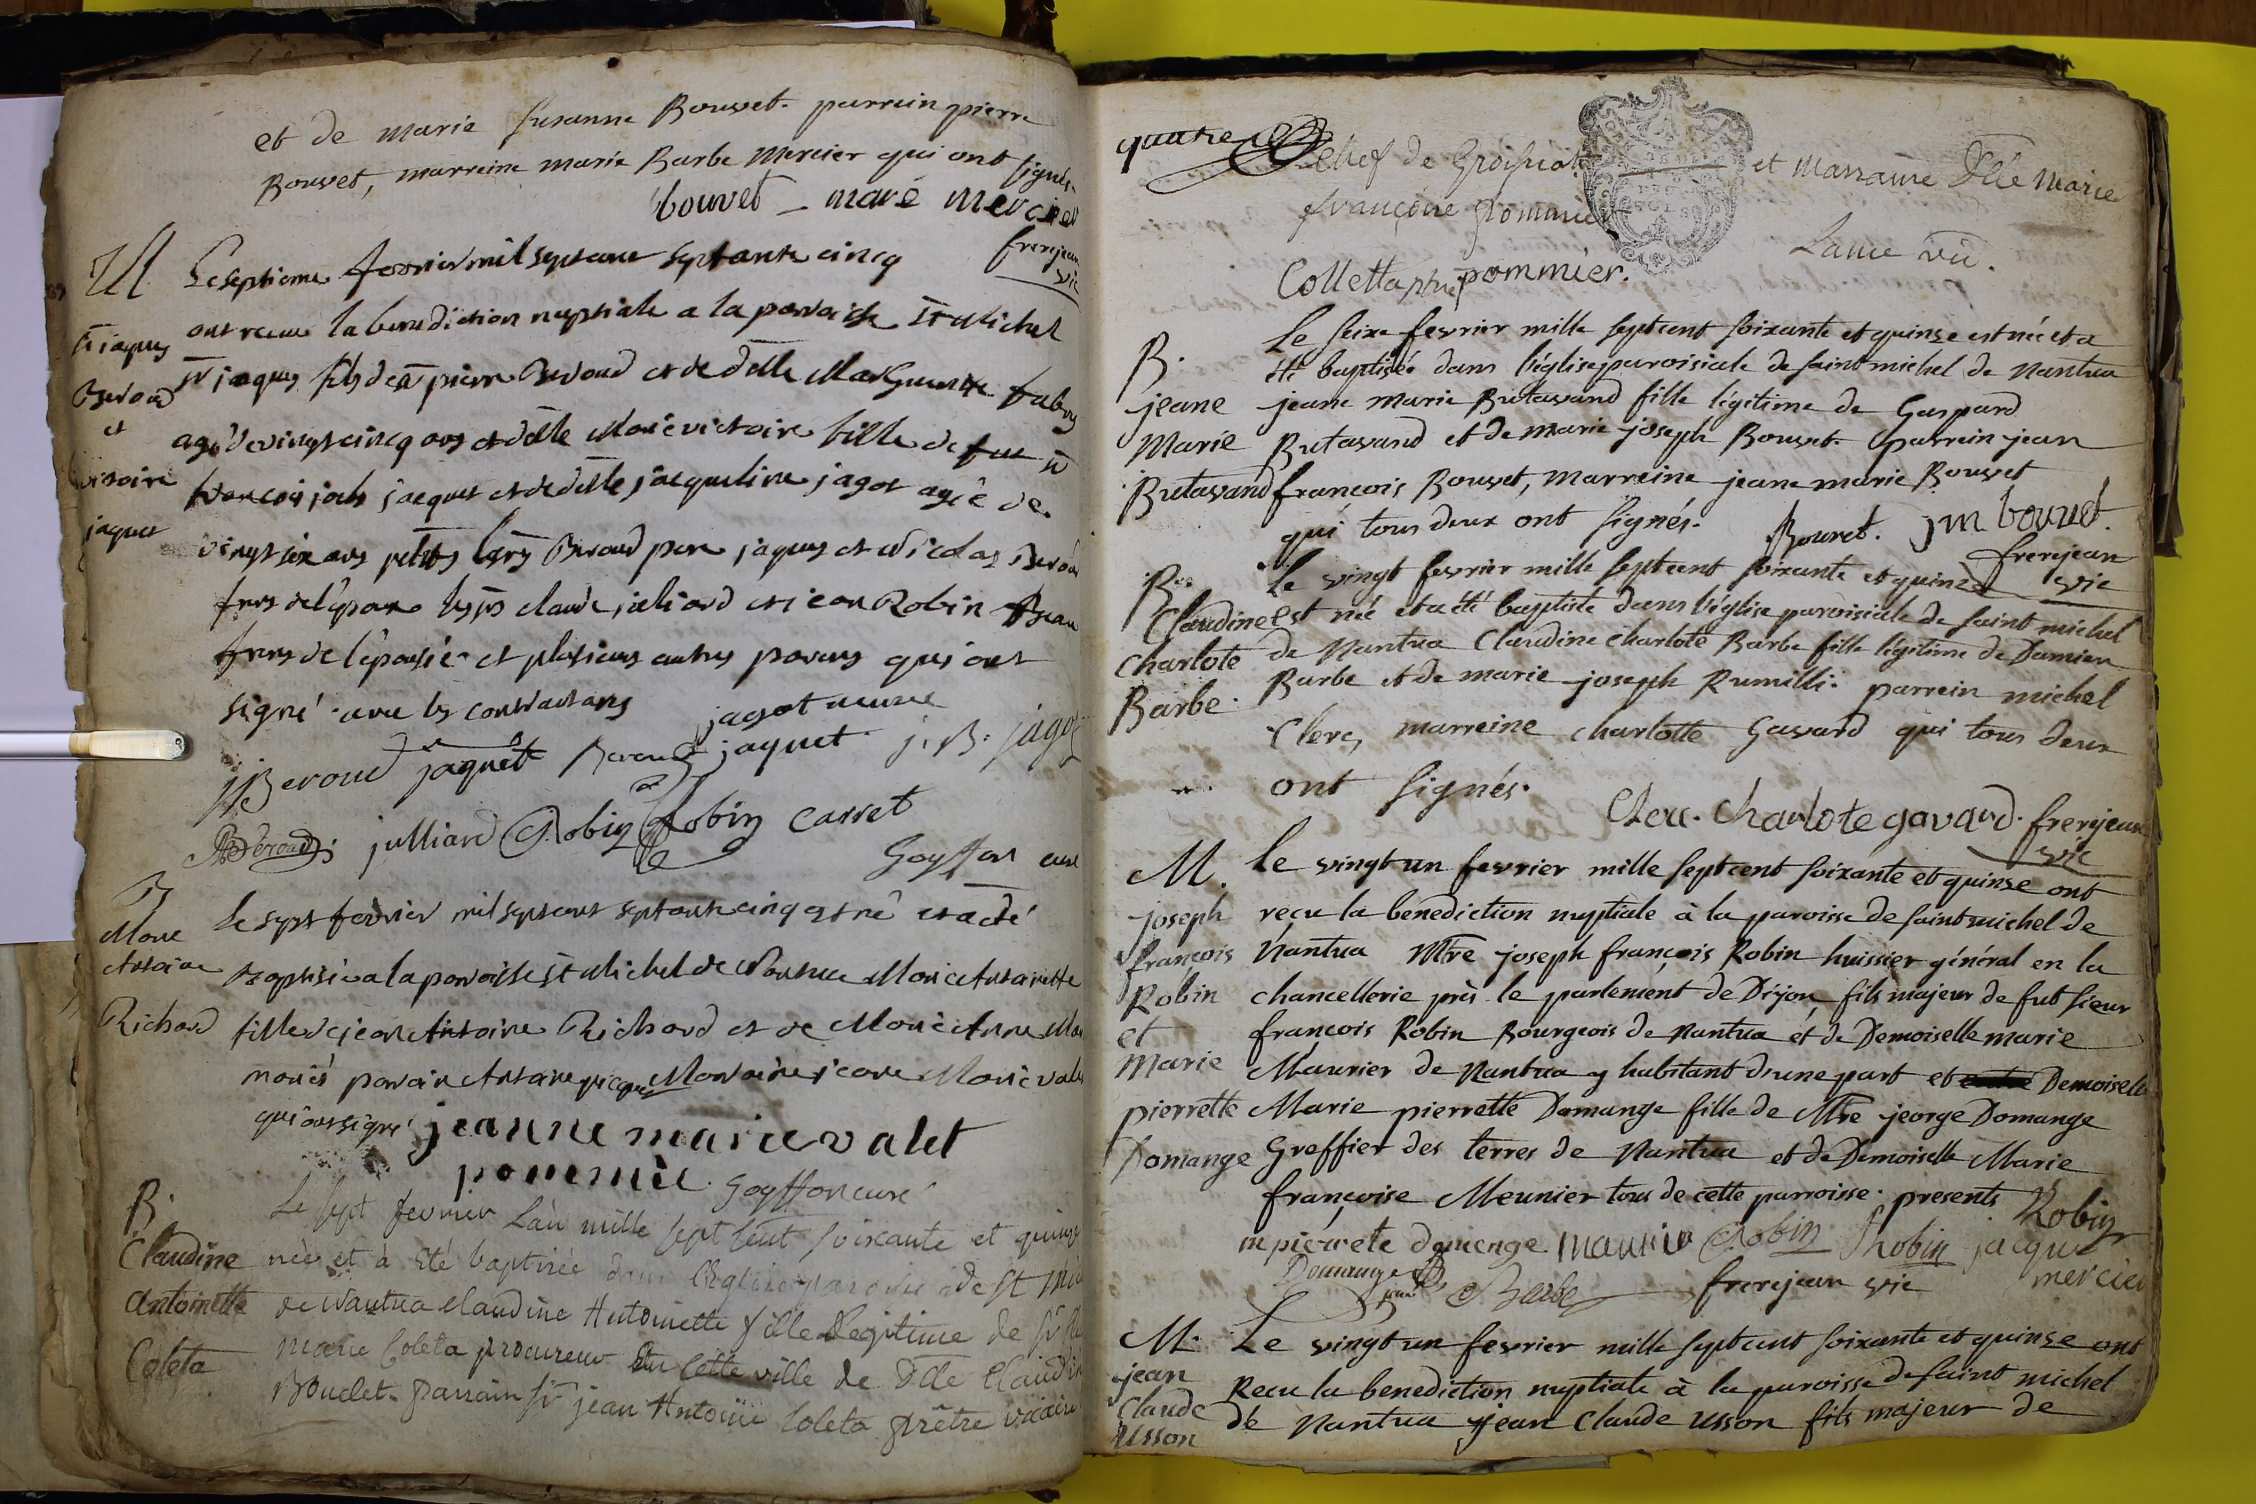 et de marie susanne Bouvet. parrein pierre
Bouvet, marreine marie Barbe Mercier qui ont signés.
bouvet - marie mercier
frerejean
vic
M
Sr jaques
Beroud
et
victoire
jaquet
Le septieme fevrier mil sept cent septante cinq
ont recue la benediction nuptiale a la paroisse St Michel
Sr jaques fils de Sr pierre Beroud et de dlle Marguerite
agé de vingt cinq ans et dlle Marie victoire fille de feu Sr
francois jaquet et de dlle jacqueline jagot agée de
vingt six ans Beroud pere jaques et Nicolas Beroud
frers de l'epoux les srs claude juliard et jean Robin Beau
frers de l'épousée et plusieurs autres parens qui ont
signé avec les contractans
jagot
Beroud jaquet Beroud jaquet j. B. jagot
Beroud julliard Robin Robin Carret
Goyffon curé
B
Marie
Antoine
Richard
Le sept fevrier mil sept cent septante cinq est né et a été
baptisée a la paroisse St Michel de Nantua Marie Antoinette
fille de jean Antoine Richard et de Marie Anne
parrain Antoine Marraine jeane Marie valet
qui ont signé jeanne marie valet
Goyffon curé
B.
Claudine
Antoinette
Coleta
Le sept fevrier L'an mille sept cent soixante et quinze
née et à été baptisée dans l'Eglise de St
de Nantua claudine Antoinette fille Legitime de Sr
marie Coleta procureur en cette ville de Dlle
Bouclet. parrain Sr jean Antoine Coleta prêtre vicaire
quatre
chef de Groissiat et Marraine Dlle Marie
françoise pommier
Colletta ptre pommier.
B.
jeane
Marie
Brutavand
Le seize fevrier mille sept cent soixante et quinze est né et a
été baptisée dans l'église paroisiale de saint michel de Nantua
jeane marie Brutavand fille légitime de Gaspard
Brutavand et de marie joseph Bouvet. parrein jean
françois Bouvet, marreine jeane marie Bouvet
qui tous deux ont signés. Bouvet. jm bouvet.
frerejean
vic
B.
Claudine
Charlote
Barbe.
Le vingt fevrier mille sept cent soixante et quinze
est née et a été baptisée dans l'église paroisiale de saint michel
de Nantua Claudine Charlote Barbe fille légitime de Damien
Barbe et de marie joseph Rumilli. parrein michel
Clerc, marreine charlotte Gavard qui tous deux
ont signés.
Clerc. Charlote gavard. frerejean
vic
M.
joseph
françois
Robin
et
Marie
pierrette
Domange
Le vingt un fevrier mille sept cent soixante et quinze ont
reçu la benediction nuptiale à la paroisse de saint michel de
Nantua Mtre joseph françois Robin huissier général en la
chancellerie près le parlement de Dijon, fils majeur de fut sieur
françois Robin Bourgeois de Nantua et de Demoiselle marie
Maurier de Nantua y habitant d'une part et Demoiselle
Marie pierrette Domange fille de Mtre jeorge Domange
Greffier des terres de Nantua et de Demoiselle Marie
françoise Meunier tous de cette parroisse. presents Robin
m pierrete domenge maurier Robin Robin jacque
mercier
Domange Barbe frerejean vic
M.
jean
Claude
Usson
Le vingt un fevrier mille sept cent soixante et quinze ont
Recu la benediction nuptiale à la paroisse de saint michel
de Nantua jean Claude Usson fils majeur de